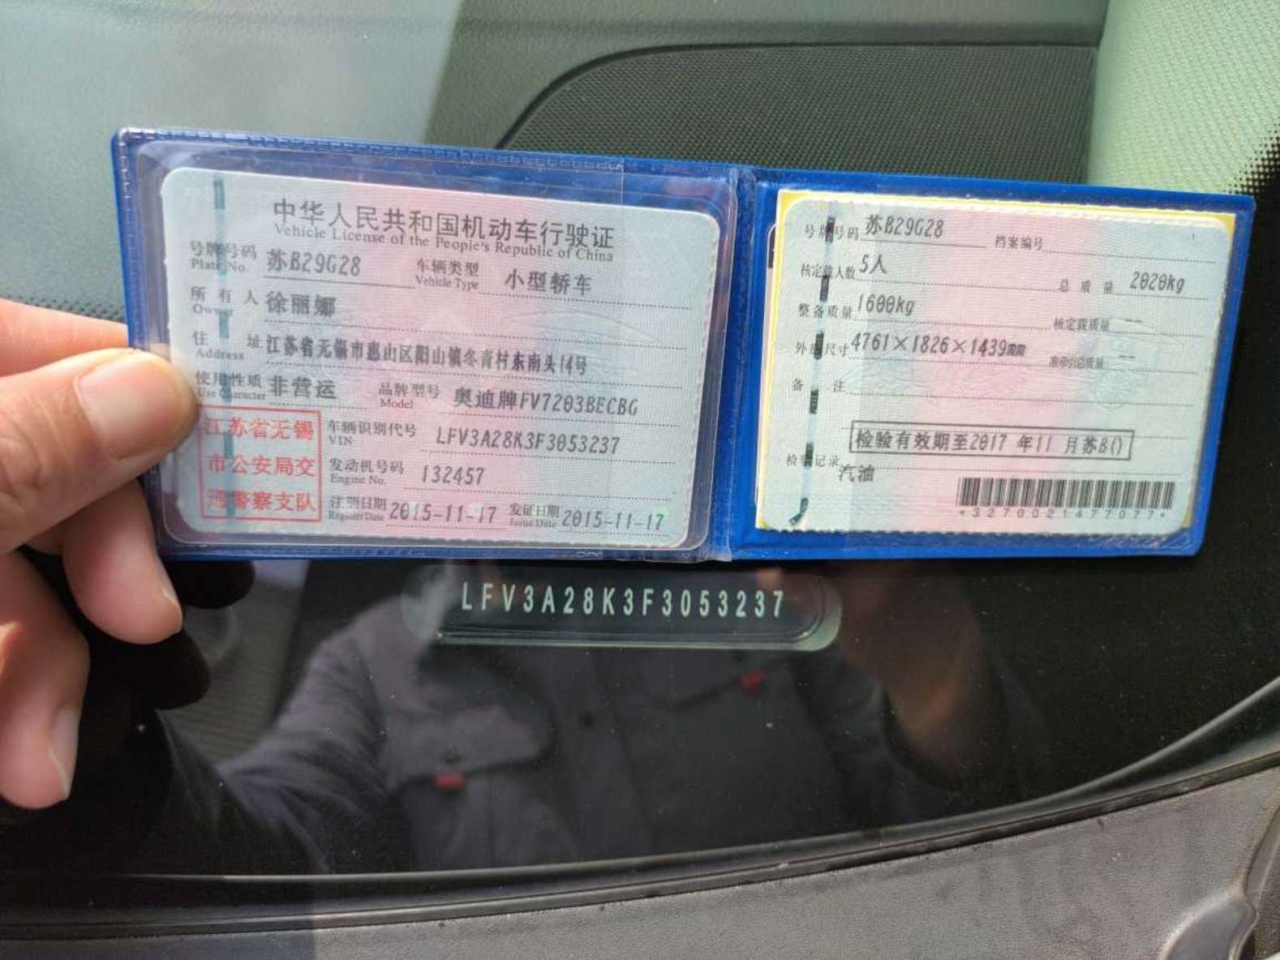 中华人民共和国机动车行驶证
Vehicle License of the People's Republic of China
号牌号码 苏B29G28 车辆类型 小型轿车
Plate No. Vehicle Type
所有人 徐丽娜
Owner
住址 江苏省无锡市惠山区阳山镇冬青村东南头14号
Address
使用性质 非营运 品牌型号 奥迪牌FV7203BECBG
Use Character Model
江苏省无锡
市公安局交
通警察支队
车辆识别代号 LFV3A28K3F3053237
VIN
发动机号码 132457
Engine No.
注册日期 2015-11-17 发证日期 2015-11-17
Register Date Issue Date
号牌号码 苏B29G28 档案编号
核定载人数 5人 总质量 2020kg
整备质量 1600kg 核定载质量 --
外廓尺寸 4761×1826×1439mm 准牵引总质量 --
备注
检验有效期至2017年11月苏B()
检验记录
汽油
*3270021477077*
LFV3A28K3F3053237